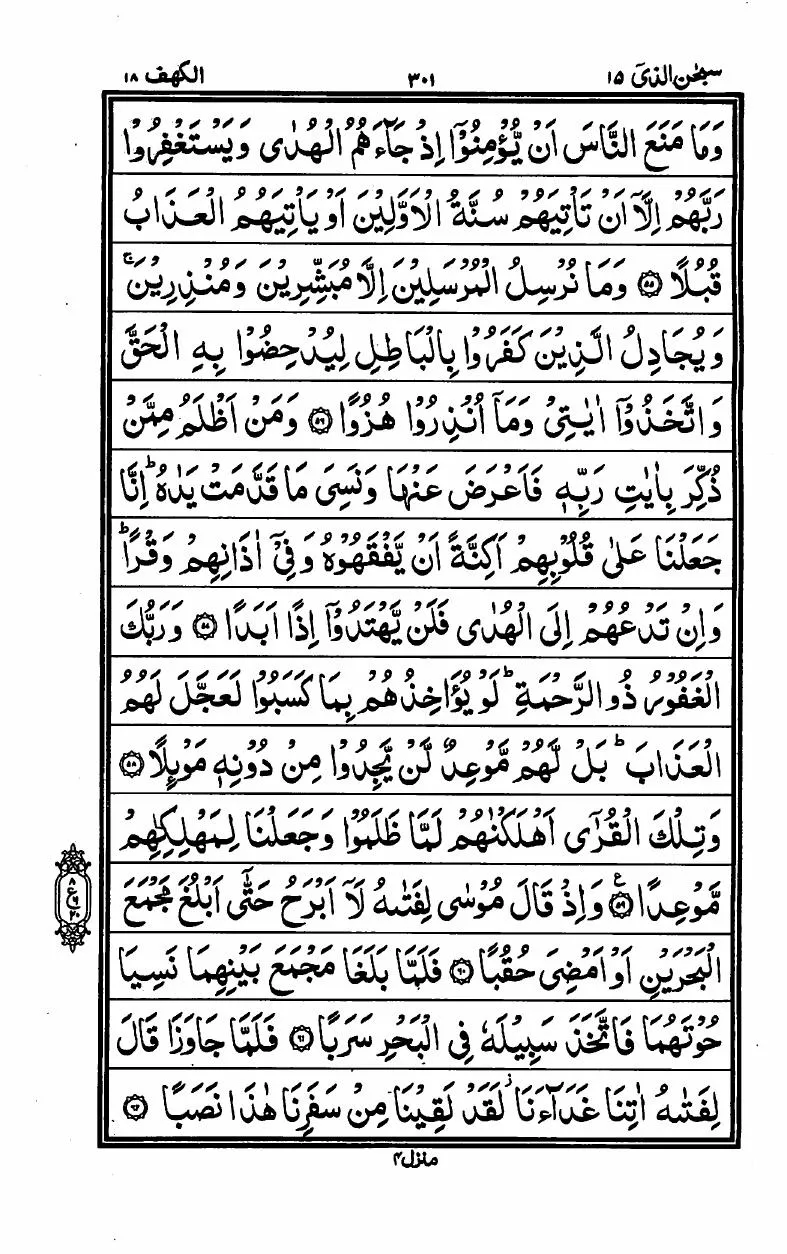 سبحٰن الذی ١٥ ٣٠١ الكهف ١٨
وَمَا مَنَعَ النَّاسَ اَنْ يُّؤْمِنُوْۤا اِذْ جَآءَهُمُ الْهُدٰى وَيَسْتَغْفِرُوْا
رَبَّهُمْ اِلَّاۤ اَنْ تَاْتِيَهُمْ سُنَّةُ الْاَوَّلِيْنَ اَوْ يَاْتِيَهُمُ الْعَذَابُ
قُبُلًا ﴿٥٥﴾ وَمَا نُرْسِلُ الْمُرْسَلِيْنَ اِلَّا مُبَشِّرِيْنَ وَمُنْذِرِيْنَ ۚ
وَيُجَادِلُ الَّذِيْنَ كَفَرُوْا بِالْبَاطِلِ لِيُدْحِضُوْا بِهِ الْحَقَّ
وَاتَّخَذُوْۤا اٰيٰتِىْ وَمَاۤ اُنْذِرُوْا هُزُوًا ﴿٥٦﴾ وَمَنْ اَظْلَمُ مِمَّنْ
ذُكِّرَ بِاٰيٰتِ رَبِّهٖ فَاَعْرَضَ عَنْهَا وَنَسِىَ مَا قَدَّمَتْ يَدٰهُ ؕ اِنَّا
جَعَلْنَا عَلٰى قُلُوْبِهِمْ اَكِنَّةً اَنْ يَّفْقَهُوْهُ وَفِىْۤ اٰذَانِهِمْ وَقْرًا ؕ
وَاِنْ تَدْعُهُمْ اِلَى الْهُدٰى فَلَنْ يَّهْتَدُوْۤا اِذًا اَبَدًا ﴿٥٧﴾ وَرَبُّكَ
الْغَفُوْرُ ذُو الرَّحْمَةِ ؕ لَوْ يُؤَاخِذُهُمْ بِمَا كَسَبُوْا لَعَجَّلَ لَهُمُ
الْعَذَابَ ؕ بَلْ لَّهُمْ مَّوْعِدٌ لَّنْ يَّجِدُوْا مِنْ دُوْنِهٖ مَوْئِلًا ﴿٥٨﴾
وَتِلْكَ الْقُرٰٓى اَهْلَكْنٰهُمْ لَمَّا ظَلَمُوْا وَجَعَلْنَا لِمَهْلِكِهِمْ
مَّوْعِدًا ﴿٥٩﴾ ع وَاِذْ قَالَ مُوْسٰى لِفَتٰىهُ لَاۤ اَبْرَحُ حَتّٰۤى اَبْلُغَ مَجْمَعَ
٨ ع ٢٠
الْبَحْرَيْنِ اَوْ اَمْضِىَ حُقُبًا ﴿٦٠﴾ فَلَمَّا بَلَغَا مَجْمَعَ بَيْنِهِمَا نَسِيَا
حُوْتَهُمَا فَاتَّخَذَ سَبِيْلَهٗ فِى الْبَحْرِ سَرَبًا ﴿٦١﴾ فَلَمَّا جَاوَزَا قَالَ
لِفَتٰىهُ اٰتِنَا غَدَآءَنَا ز لَقَدْ لَقِيْنَا مِنْ سَفَرِنَا هٰذَا نَصَبًا ﴿٦٢﴾
منزل٤